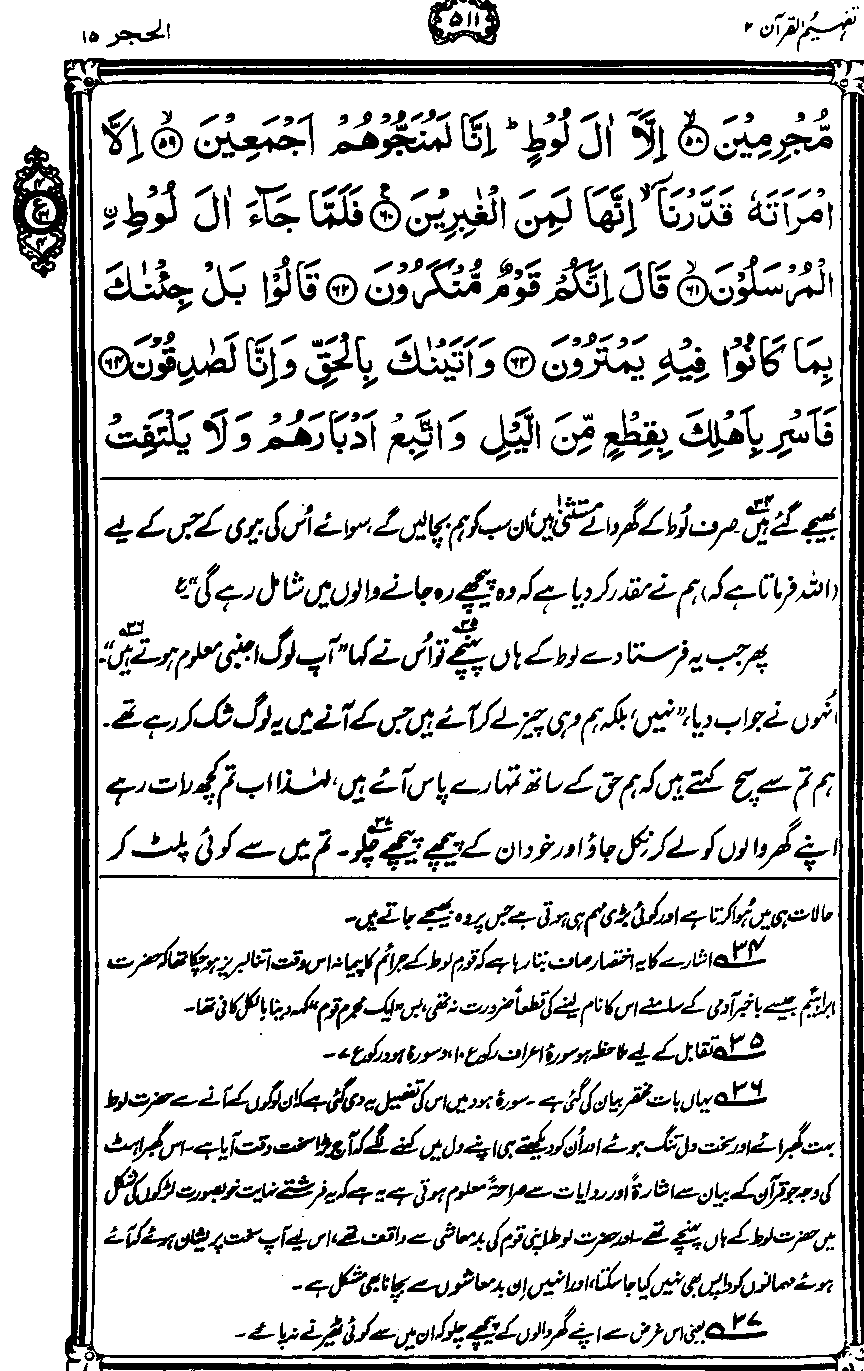 تفہیم القرآن ۲
۵۱۱
الحجر ۱۵
مُّجْرِمِيْنَ ﴿۵۸﴾ اِلَّاۤ اٰلَ لُوْطٍ ؕ اِنَّا لَمُنَجُّوْهُمْ اَجْمَعِيْنَ ﴿۵۹﴾ اِلَّا
امْرَاَتَهٗ قَدَّرْنَاۤ ۙ اِنَّهَا لَمِنَ الْغٰبِرِيْنَ ﴿۶۰﴾ فَلَمَّا جَآءَ اٰلَ لُوْطِ ِن
الْمُرْسَلُوْنَ ﴿۶۱﴾ قَالَ اِنَّكُمْ قَوْمٌ مُّنْكَرُوْنَ ﴿۶۲﴾ قَالُوْا بَلْ جِئْنٰكَ
بِمَا كَانُوْا فِيْهِ يَمْتَرُوْنَ ﴿۶۳﴾ وَاَتَيْنٰكَ بِالْحَقِّ وَاِنَّا لَصٰدِقُوْنَ ﴿۶۴﴾
فَاَسْرِ بِاَهْلِكَ بِقِطْعٍ مِّنَ الَّيْلِ وَاتَّبِعْ اَدْبَارَهُمْ وَلَا يَلْتَفِتْ
بھیجے گئے ہیں۳۴۔ صرف لُوط کے گھر والے مستثنیٰ ہیں، ان سب کو ہم بچالیں گے، سوائے اُس کی بیوی کے جس کے لیے
(اللہ فرماتا ہے کہ) ہم نے مقدر کر دیا ہے کہ وہ پیچھے رہ جانے والوں میں شامل رہے گی“ ع
پھر جب یہ فرستادے لوط کے ہاں پہنچے۳۵ تو اُس نے کہا ”آپ لوگ اجنبی معلوم ہوتے ہیں“۳۶۔
اُنہوں نے جواب دیا، ”نہیں، بلکہ ہم وہی چیز لے کر آئے ہیں جس کے آنے میں یہ لوگ شک کر رہے تھے۔
ہم تم سے سچ کہتے ہیں کہ ہم حق کے ساتھ تمہارے پاس آئے ہیں، لہٰذا اب تم کچھ رات رہے
اپنے گھر والوں کو لے کر نکل جاؤ اور خود ان کے پیچھے پیچھے چلو۳۷۔ تم میں سے کوئی پلٹ کر
حالات ہی میں ہُوا کرتا ہے اور کوئی بڑی مہم ہی ہوتی ہے جس پر وہ بھیجے جاتے ہیں۔
۳۴ اشارے کا یہ اختصار صاف بتا رہا ہے کہ قومِ لوط کے جرائم کا پیمانہ اس وقت اتنا لبریز ہو چکا تھا کہ حضرت
ابراہیمؑ جیسے باخبر آدمی کے سامنے اس کا نام لینے کی قطعاً ضرورت نہ تھی، بس ”ایک مجرم قوم“ کہہ دینا بالکل کافی تھا۔
۳۵ تقابل کے لیے ملاحظہ ہو سورۂ اعراف رکوع ۱۰، و سورۂ ہود رکوع ۷۔
۳۶ یہاں بات مختصر بیان کی گئی ہے۔ سورۂ ہود میں اس کی تفصیل یہ دی گئی ہے کہ ان لوگوں کے آنے سے حضرت لوط
بہت گھبرائے اور سخت دل تنگ ہوئے اور اُن کو دیکھتے ہی اپنے دل میں کہنے لگے کہ آج بڑا سخت وقت آیا ہے۔ اس گھبراہٹ
کی وجہ جو قرآن کے بیان سے اشارۃً اور روایات سے صراحۃً معلوم ہوتی ہے یہ ہے کہ یہ فرشتے نہایت خوبصورت لڑکوں کی شکل
میں حضرت لوط کے ہاں پہنچے تھے۔ اور حضرت لوط اپنی قوم کی بدمعاشی سے واقف تھے، اس لیے آپ سخت پریشان ہوئے کہ آئے
ہوئے مہمانوں کو واپس بھی نہیں کیا جا سکتا، اور انہیں اِن بدمعاشوں سے بچانا بھی مشکل ہے۔
۳۷ یعنی اس غرض سے اپنے گھر والوں کے پیچھے چلو کہ ان میں سے کوئی ٹھیرنے نہ پائے۔